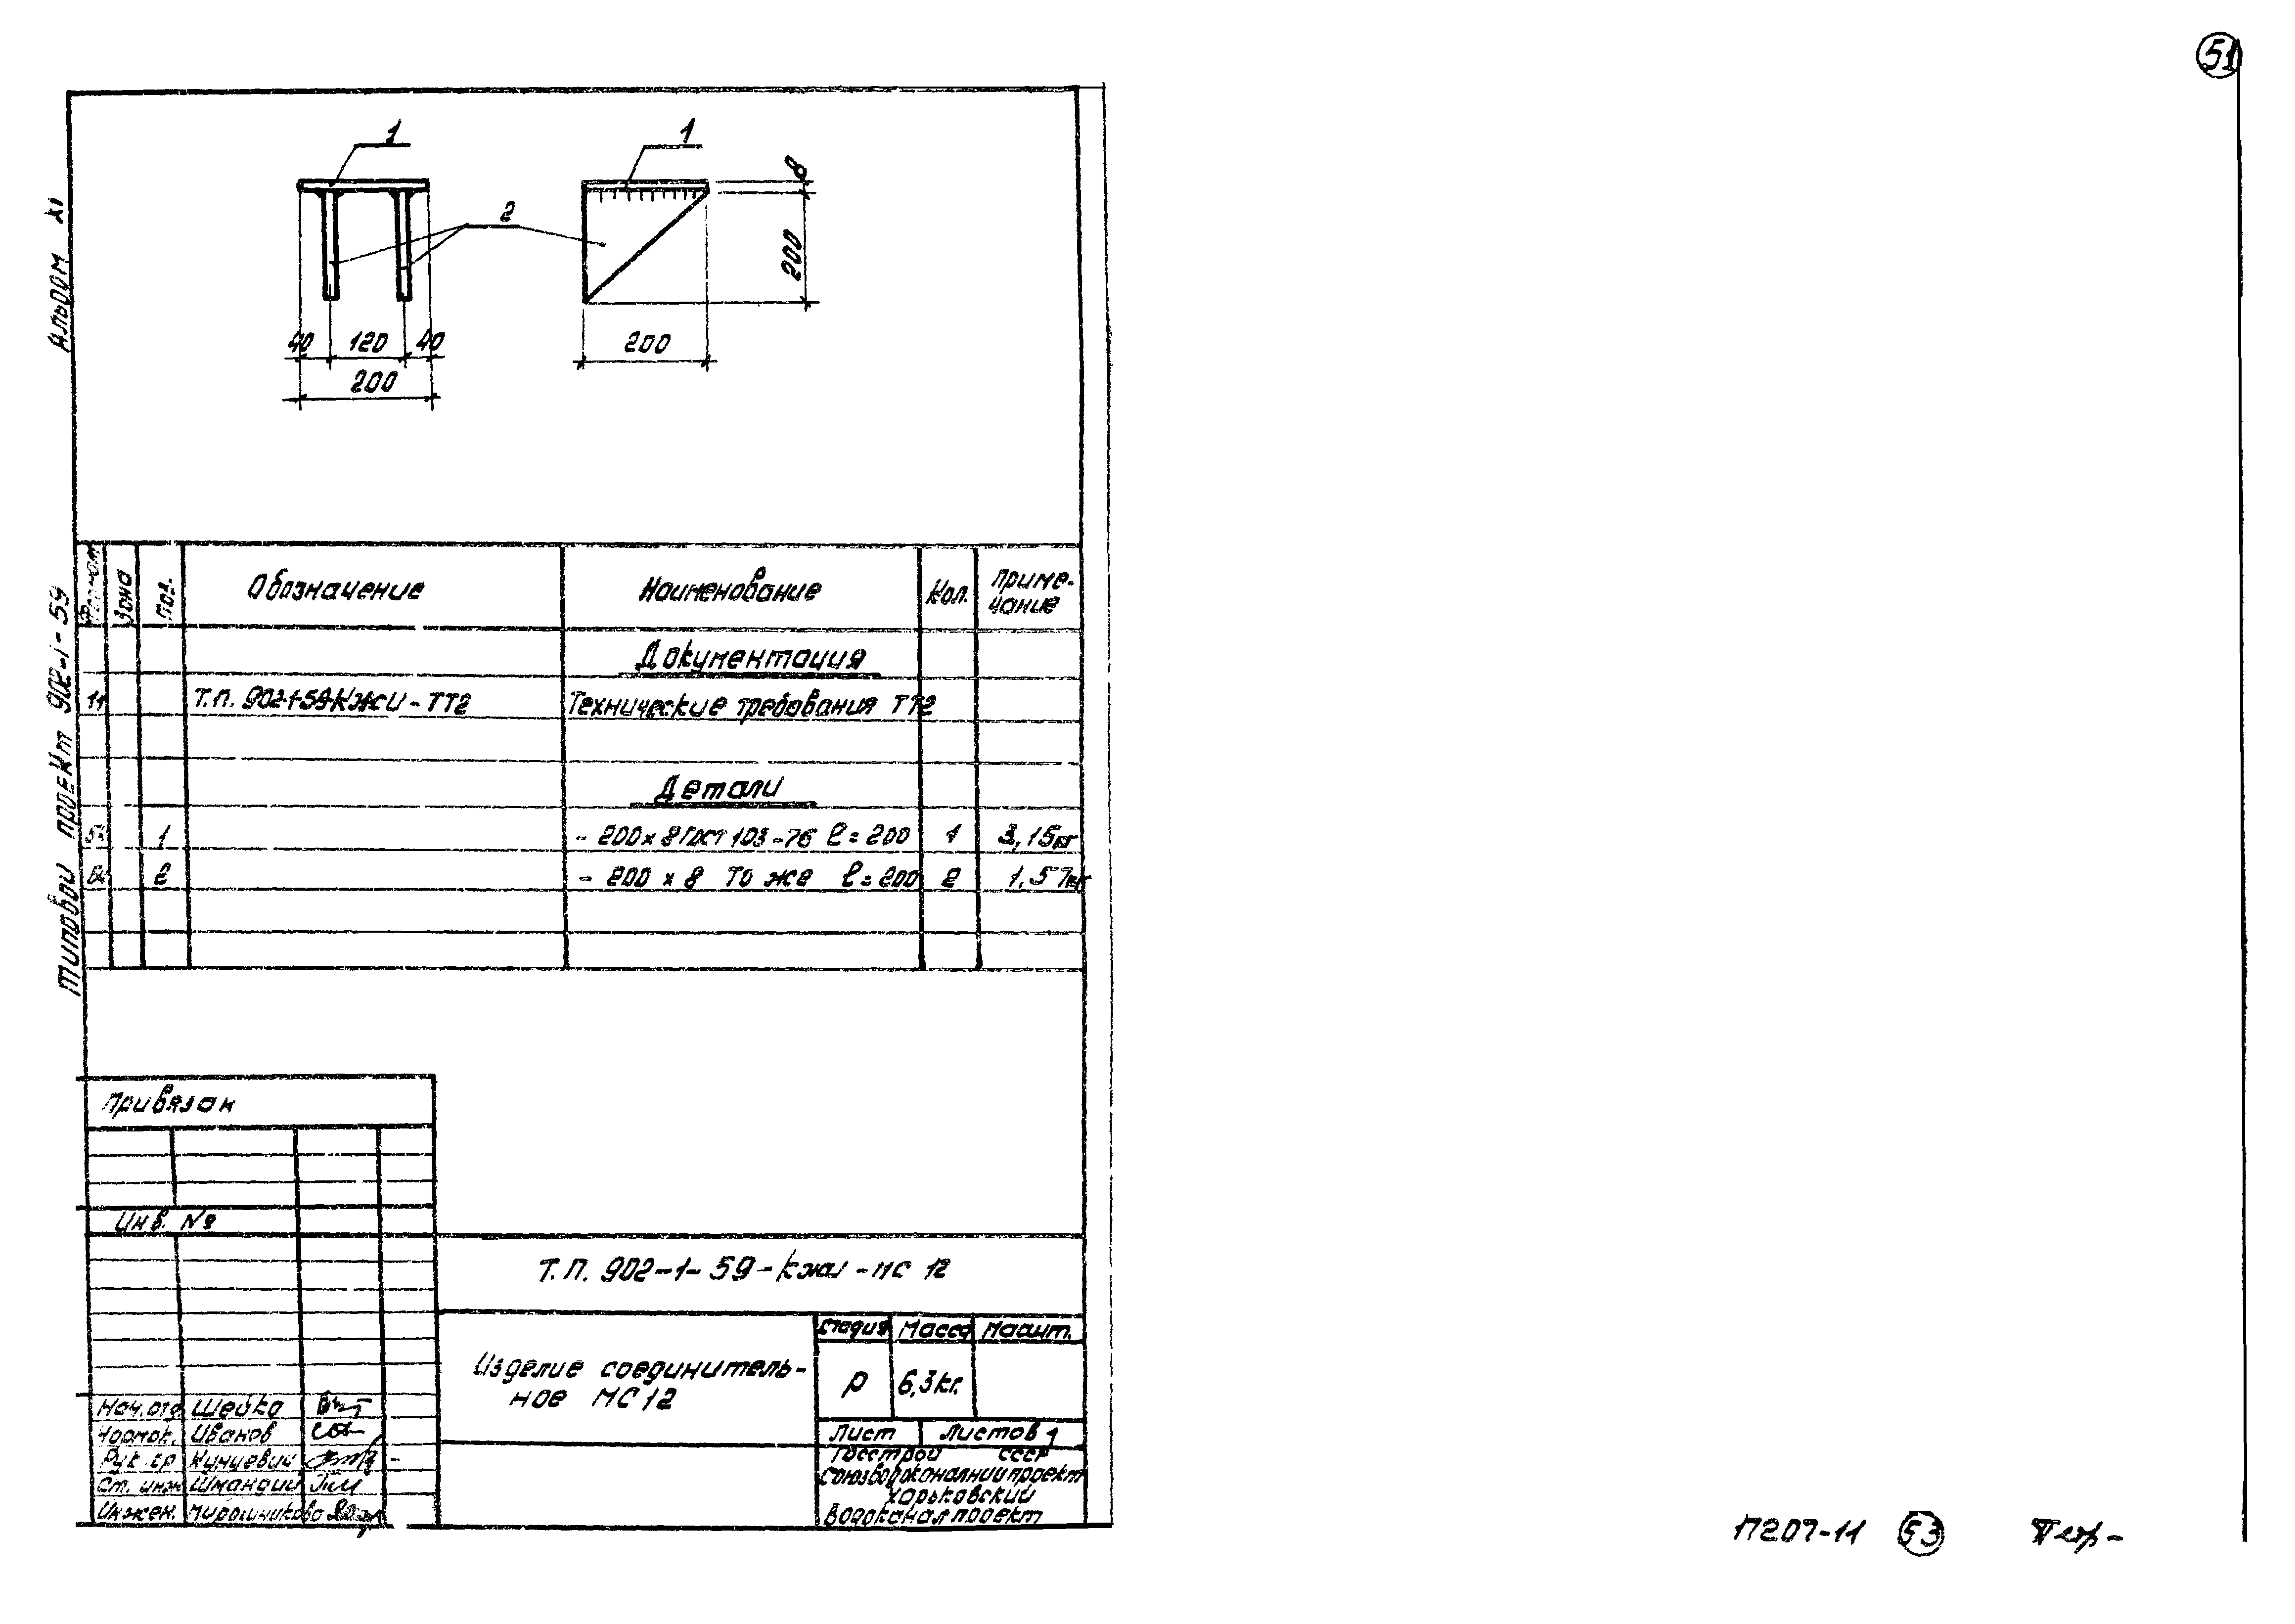 51
Альбом XI
Типовой проект 902-1-59
1
1
8
2
200
40 120 40
200
200
Формат Зона Поз. Обозначение Наименование Кол. Приме-
чание
Документация
11 Т.П. 902-1-59-КЖИ-ТТ2 Технические требования ТТ2
Детали
1 - 200×8 ГОСТ 103-76 ℓ=200 1 3,15кг
2 - 200×8 То же ℓ=200 2 1,57кг
Привязан
Инв. №
Т.П. 902-1-59-КЖИ-МС 12
Изделие соединитель-
ное МС12
Стадия Масса Масшт.
Р 6,3кг.
Лист Листов 1
Госстрой СССР
Союзводоканалниипроект
Харьковский
Водоканалпроект
Нач.отд Шейко
Нормок. Иванов
Рук. гр Кунцевич
Ст. инж Шмандий
Инжен. Мирошникова
17207-11 53